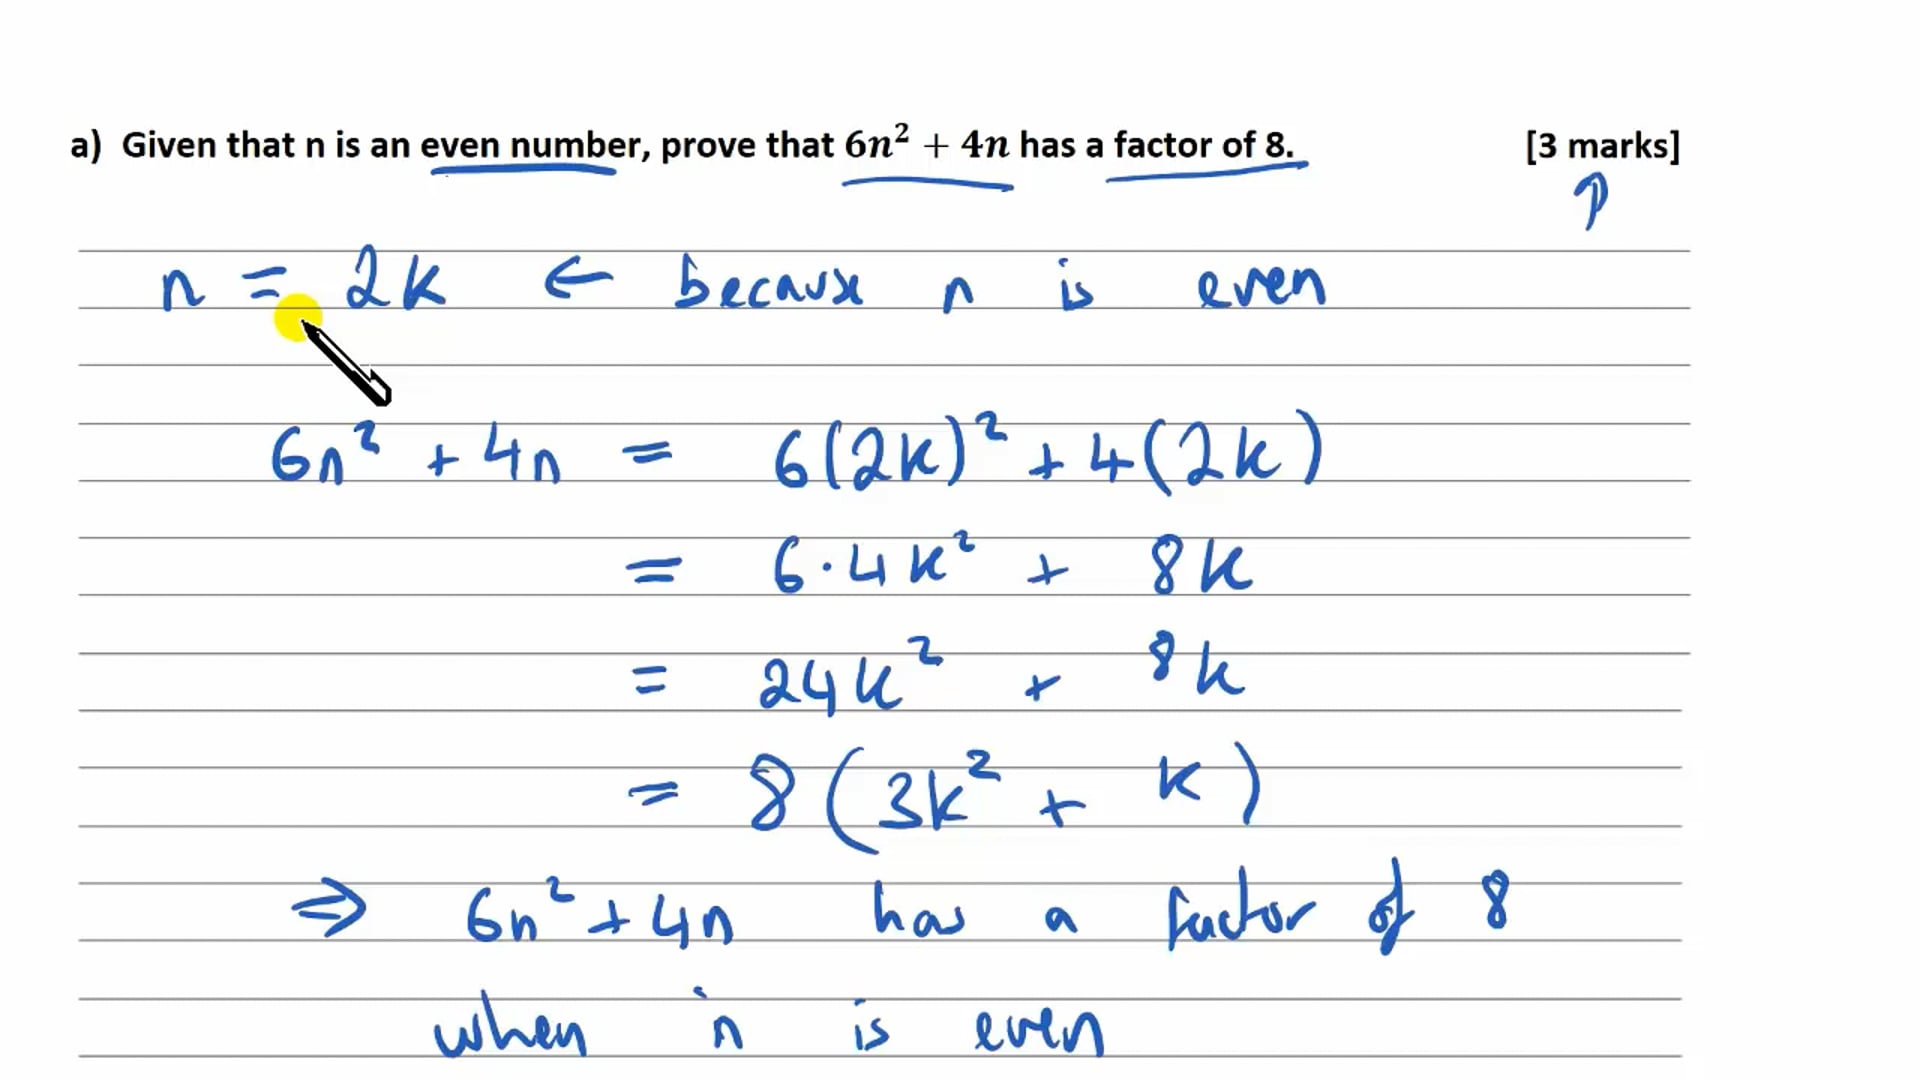 a) Given that n is an even number, prove that 6n² + 4n has a factor of 8. [3 marks]
n = 2k ← because n is even
6n² + 4n = 6(2k)² + 4(2k)
= 6·4k² + 8k
= 24k² + 8k
= 8(3k² + k)
⇒ 6n² + 4n has a factor of 8
when n is even